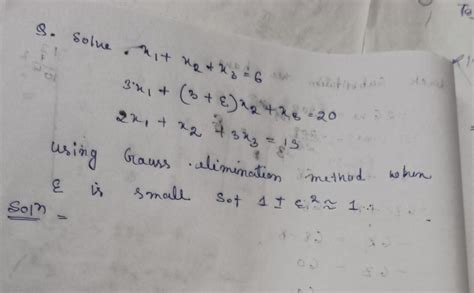 Q. Solve x₁ + x₂ + x₃ = 6
3x₁ + (3 + ε)x₂ + x₃ = 20
2x₁ + x₂ + 3x₃ = 13
using Gauss elimination method when
ε is small s.t 1 ± ε² ≈ 1.
Solⁿ =